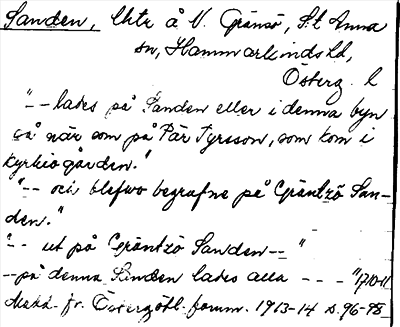 Sanden, Uhte å N. Gränsö, S:t Anna
sn, Hammarkinds hd,
Österg. l
"-- lades på Sanden eller i denna byn
så när som på Pär Tyrsson, som kom i
kyrkiogården."
"-- och blefwo begrafne på Gräntzö San-
den."
"-- ut på Gräntzö Sanden --"
-- på denna Sanden lades alla - - - "1710-11
Medd. fr. Östergötl. fornm. 1913-14 s. 96-98